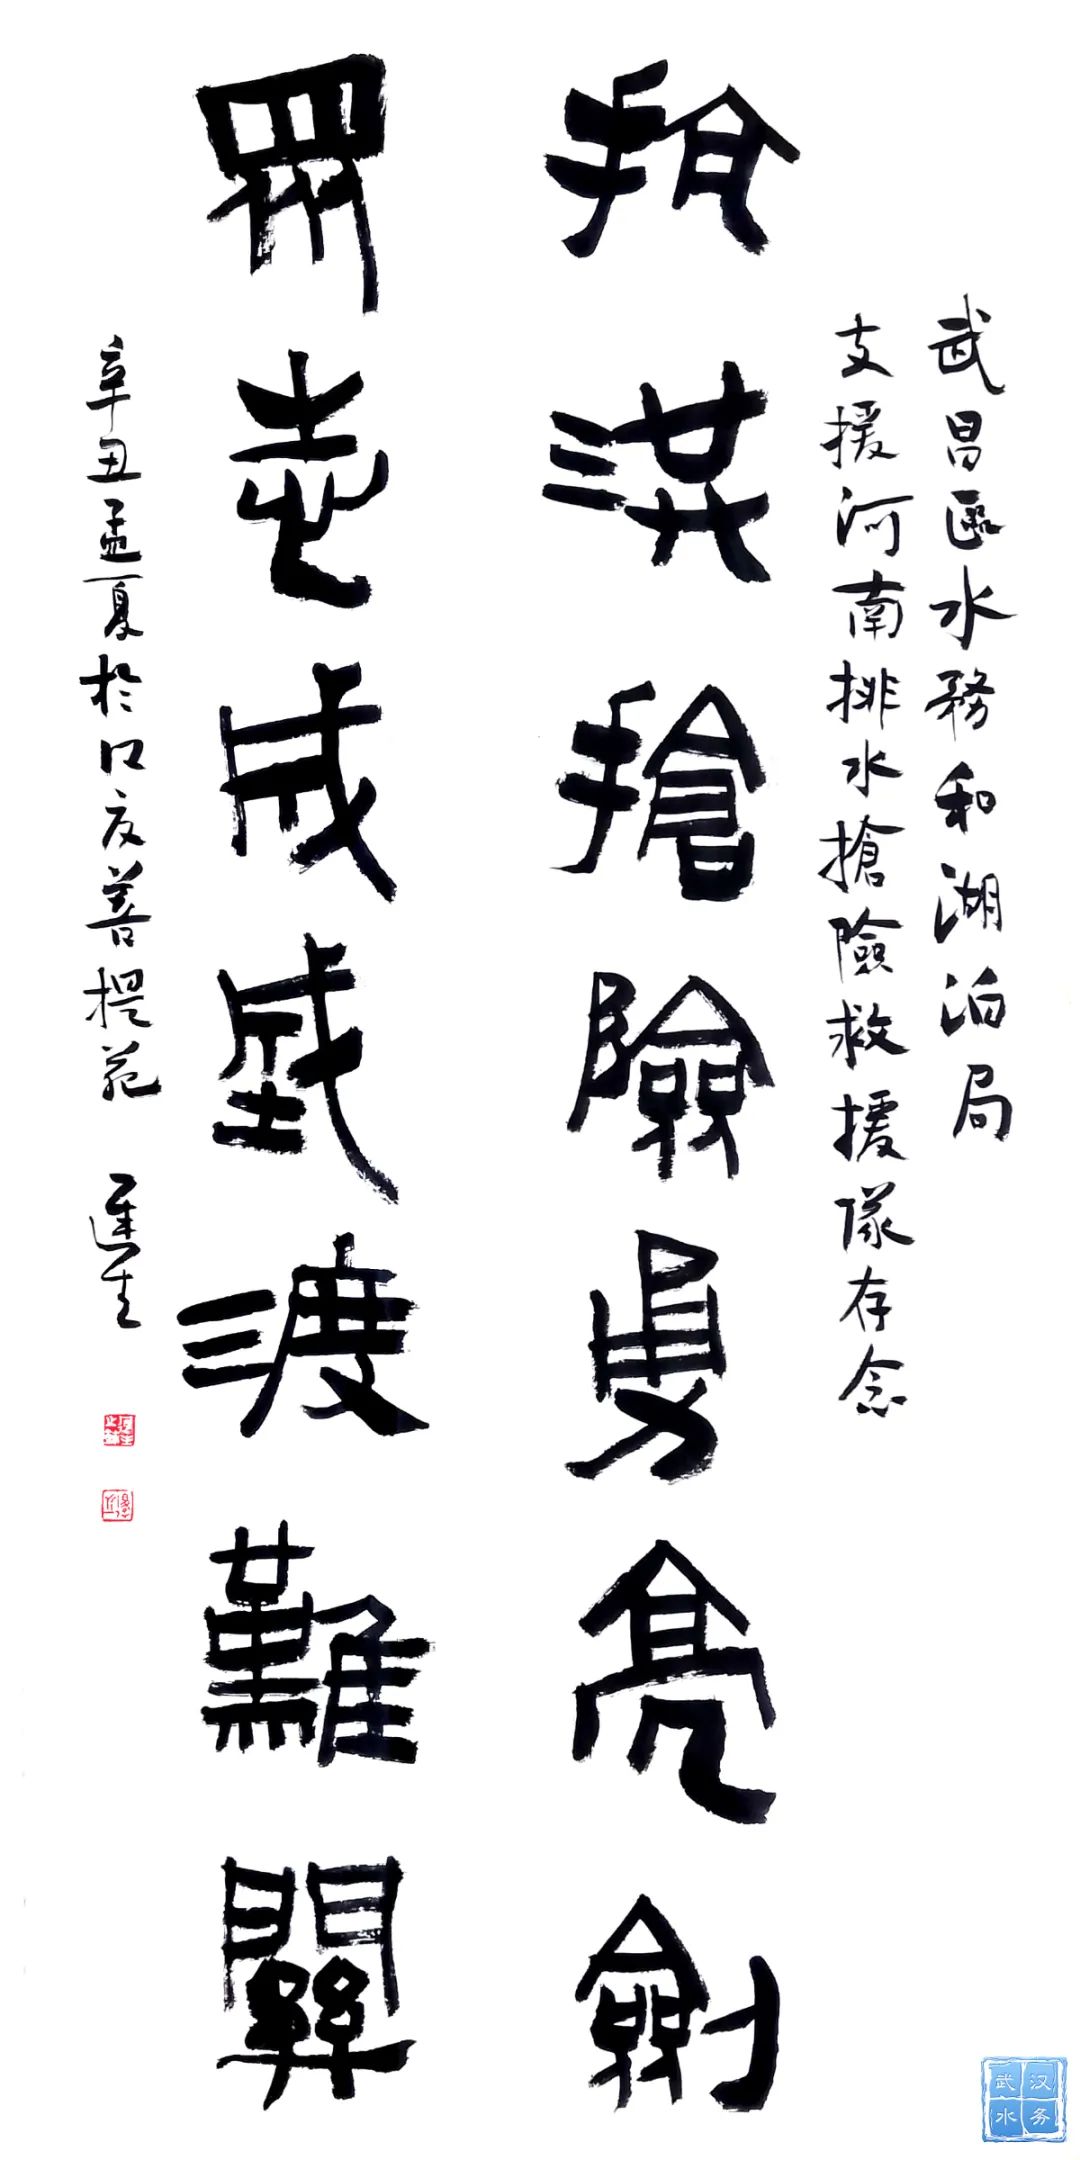 武昌區水務和湖泊局
支援河南排水搶險救援隊存念
抗洪搶險勇亮劍
眾志成城渡難關
辛丑孟夏於江夏菩提苑
武汉
水务